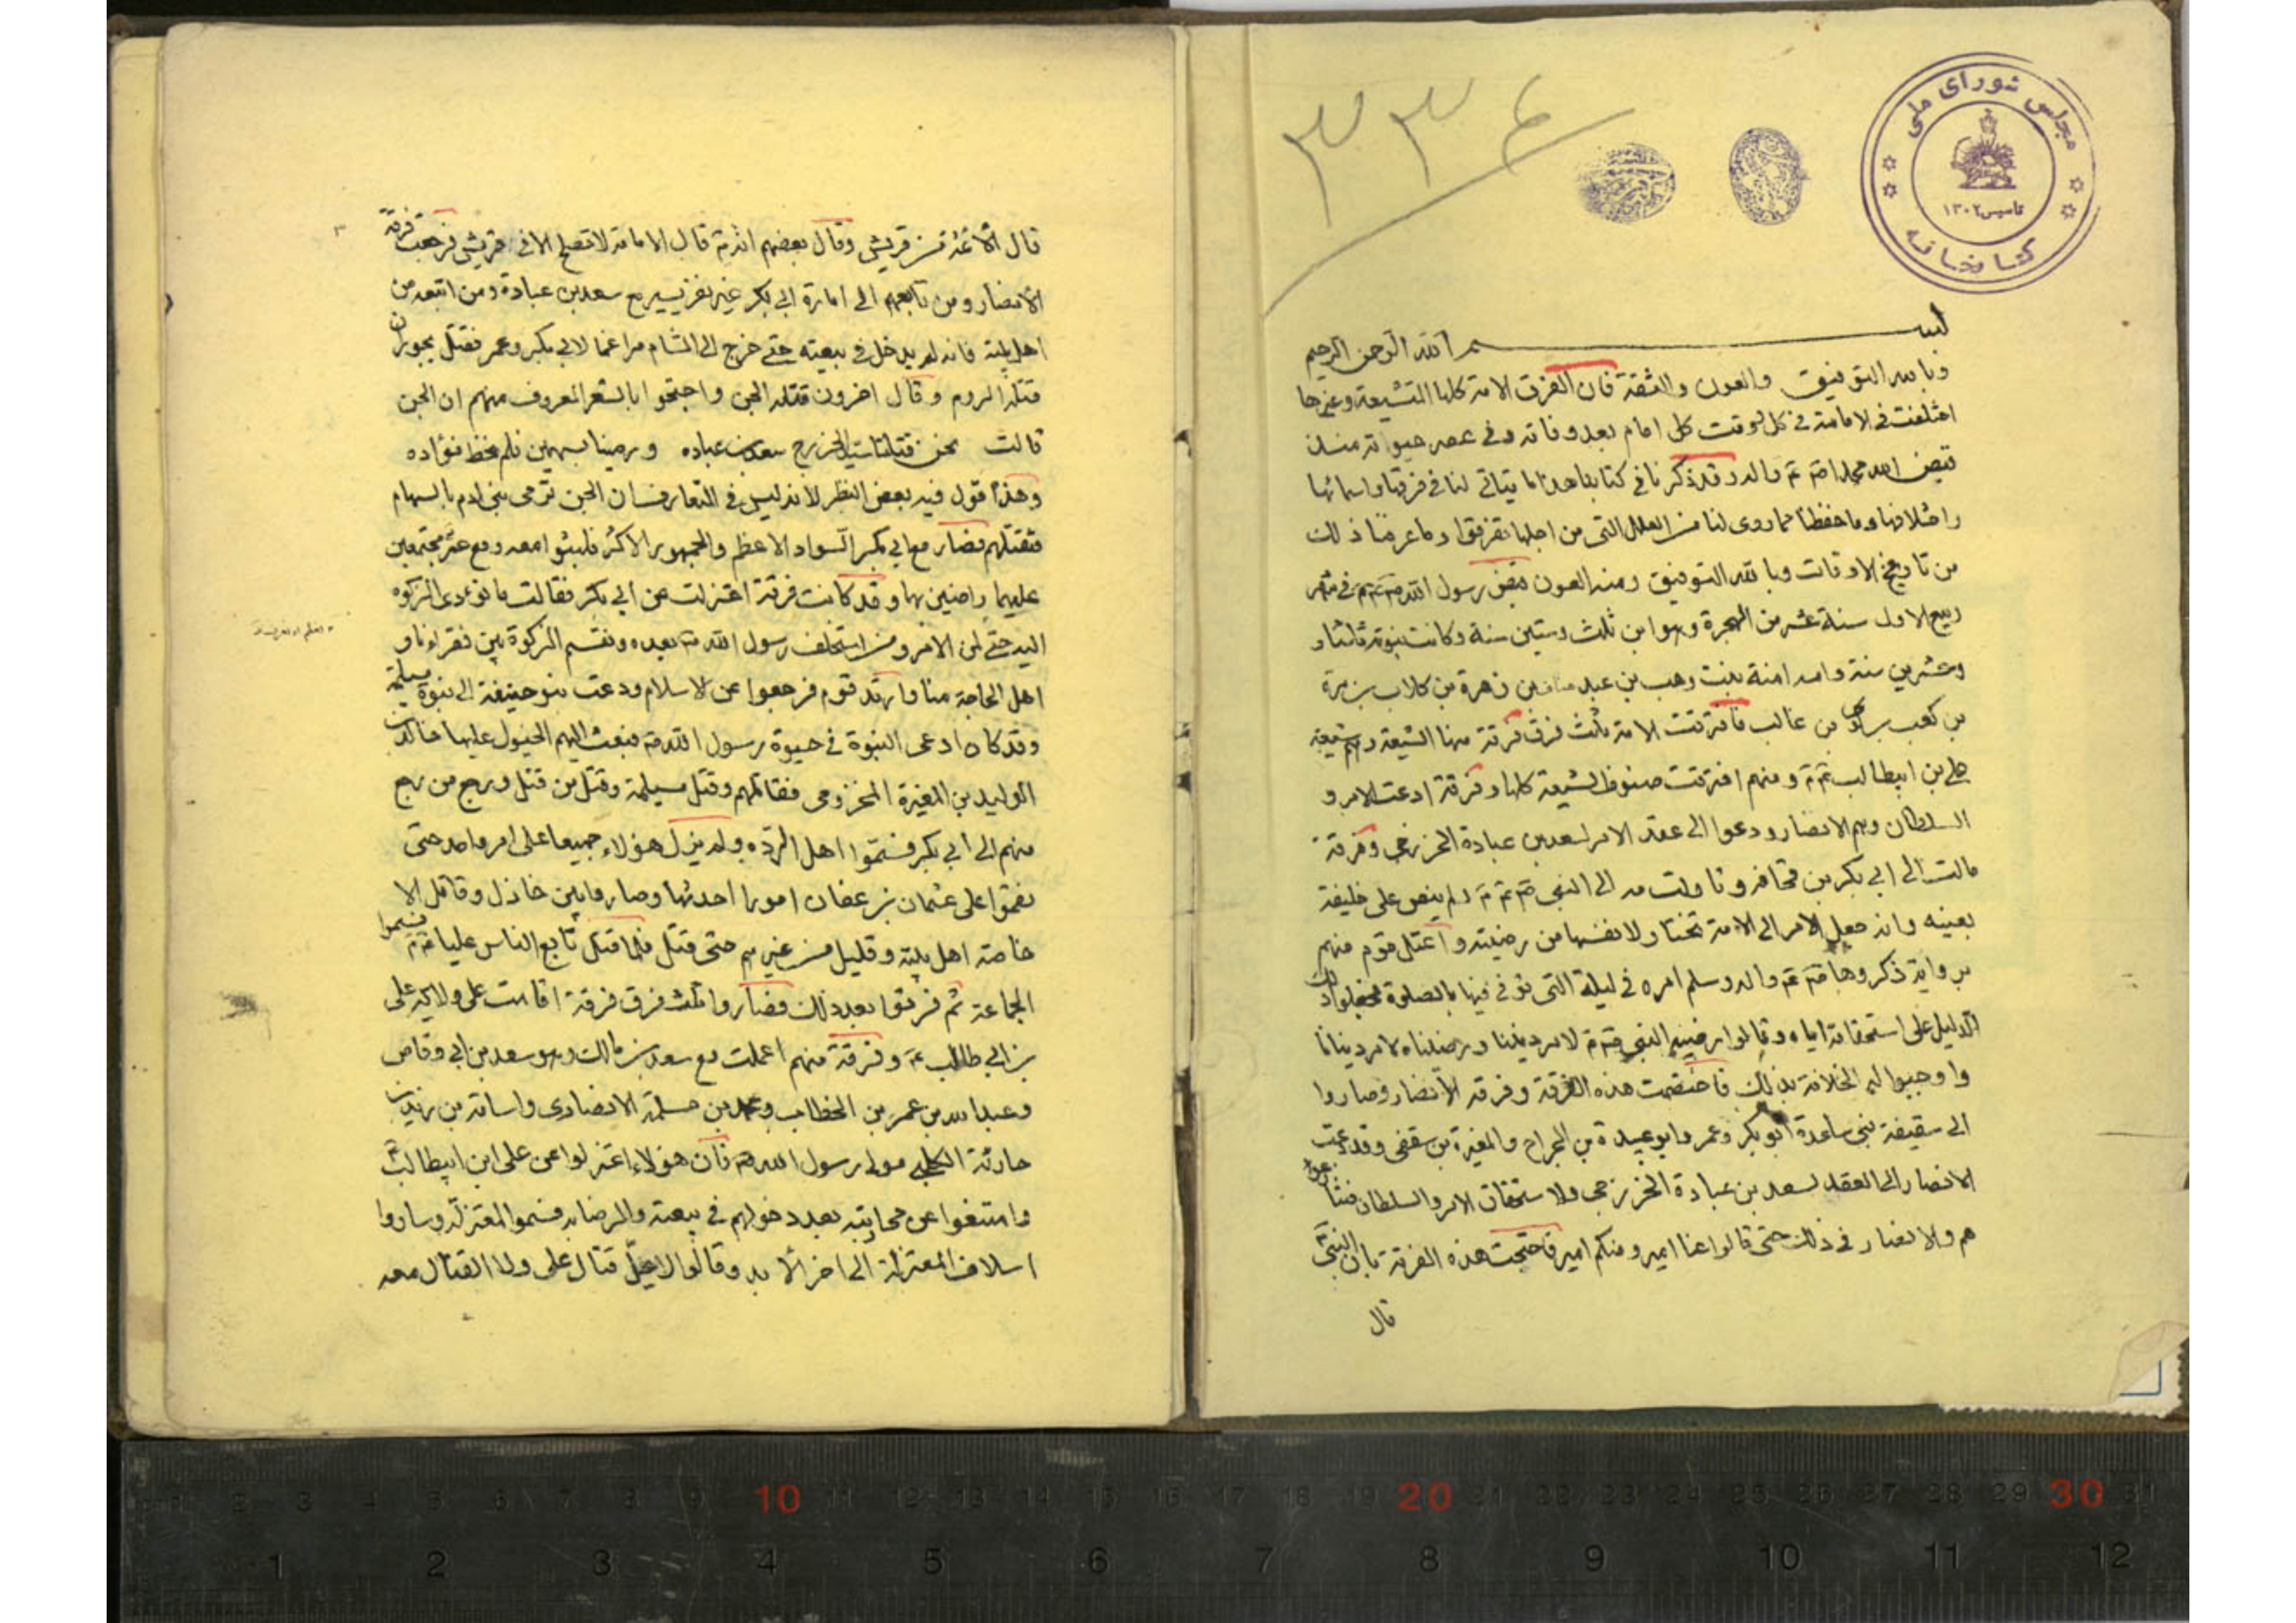 مجلس شورای ملی
تاسیس ۱۳۰۲
کتابخانه
۳۳۶
بسم الله الرحمن الرحیم
وبالله التوفیق والعون والثقة فان الفرق الامة كلها المتشیعة وغیرها
اختلفت فی الامامة فی كل وقت كل امام بعد وفاته وفی عصر حیوته منذ
قبض الله محمدا صم عم واله وقد ذكرنا فی كتابنا هذا ما یتاتی لنا فی فرقها وارائها
واختلافها وما حفظنا مما روی لنا من العلل التی من اجلها تفرقوا وما عرفنا ذلك
من تاریخ الاوقات وبالله التوفیق ومنه العون قبض رسول الله صم عم فی شهر
ربیع الاول سنة عشر من الهجرة وهو ابن ثلث وستین سنة وكانت نبوته ثلثا و
وعشرین سنة وامه امنة بنت وهب بن عبد مناف بن زهرة بن كلاب بن مرة
بن كعب بن لوی بن غالب فافترقت الامة ثلث فرق فرقة منها الشیعة وهم شیعة
علی بن ابیطالب عم ومنهم افترقت صنوف الشیعة كلها وفرقة ادعت الامر و
السلطان وهم الانصار ودعوا الی عقد الامر لسعد بن عبادة الخزرجی وفرقة
مالت الی ابی بكر بن قحافه وتاولت فیه الی النبی صم عم لم ینص علی خلیفة
بعینه وانه جعل الامر الی الامة تختار لانفسها من رضیته واعتل قوم منهم
بروایة ذكروها صم عم واله وسلم امره فی لیلة التی توفی فیها بالصلوة فجعلوا ذلك
الدلیل علی استحقاقه ایاه وقالوا رضیه النبی صم لامر دیننا ورضیناه لامر دنیانا
واوجبوا له الخلافة بذلك فاختصمت هذه الفرقة وفرقة الانصار وصاروا
الی سقیفة بنی ساعدة ابو بكر وعمر وابو عبیدة بن الجراح والمغیرة بن سقفی وقد دعت
الانصار الی العقد لسعد بن عبادة الخزرجی والاستحقاق الامر والسلطان فتنازعوا
هم والانصار فی ذلك حتی قالوا منا امیر ومنكم امیر فاحتجت هذه الفرقة بان النبی
قال
قال الائمة من قریش وقال بعضهم انه قال الامامة لا تصلح الا فی قریش فرجعت فرقة
الانصار ومن تابعهم الی امارة ابی بكر غیر نفر یسیر مع سعد بن عبادة ومن اتبعه من
اهل بیته فانه لم یدخل فی بیعته حتی خرج الی الشام مراغما لابی بكر وعمر فقتل بحوران
قتله الروم وقال اخرون قتله الجن واحتجوا بالشعر المعروف منهم ان الجن
قالت نحن قتلنا سید الخزرج سعد بن عباده ورمینا بسهمین فلم نخط فؤاده
وهذا قول فیه بعض النظر لانه لیس فی المتعارف ان الجن ترمی بنی ادم بالسهام
فتقتلهم فصار مع ابی بكر السواد الاعظم والجمهور الاكثر فلبثوا معه ومع عمر مجتمعین
علیهما راضین بها وقد كانت فرقة اعتزلت عن ابی بكر فقالت ما نؤدی الزكوة
الیه حتی لمن الامر ومن استخلف رسول الله بعده ونقسم الزكوة بین فقراءنا و
اهل الحاجة منا وارتد قوم فرجعوا عن الاسلام ودعت بنو حنیفة الی نبوة مسیلمة
وقد كان ادعی النبوة فی حیوة رسول الله صم فبعث الیهم الخیول علیها خالد بن
الولید بن المغیرة المخزومی فقاتلهم وقتل مسیلمة وقتل من قتل ورجع من رجع
منهم الی ابی بكر فسموا اهل الردة ولم یزل هؤلاء جمیعا علی امر واحد حتی
نقموا علی عثمان بن عفان امورا احدثها وصاروا بین خاذل وقاتل الا
خاصة اهل بیته وقلیل من غیرهم حتی قتل فلما قتل تابع الناس علیا عم فسموا
الجماعة ثم فرقوا بعد ذلك فصاروا ثلث فرق فرقة اقامت علی ولایة علی
بن ابی طالب عم وفرقة منهم اعتلت مع سعد بن مالك وهو سعد بن ابی وقاص
وعبد الله بن عمر بن الخطاب ومحمد بن مسلمة الانصاری واسامة بن زید بن
حارثة الكلبی مولی رسول الله صم فان هؤلاء اعتزلوا عن علی ابن ابیطالب
وامتنعوا عن محاربته بعد دخولهم فی بیعته والرضا به فسموا المعتزلة وصاروا
اسلاف المعتزلة الی اخر الابد وقالوا لا یحل قتال علی ولا القتال معه